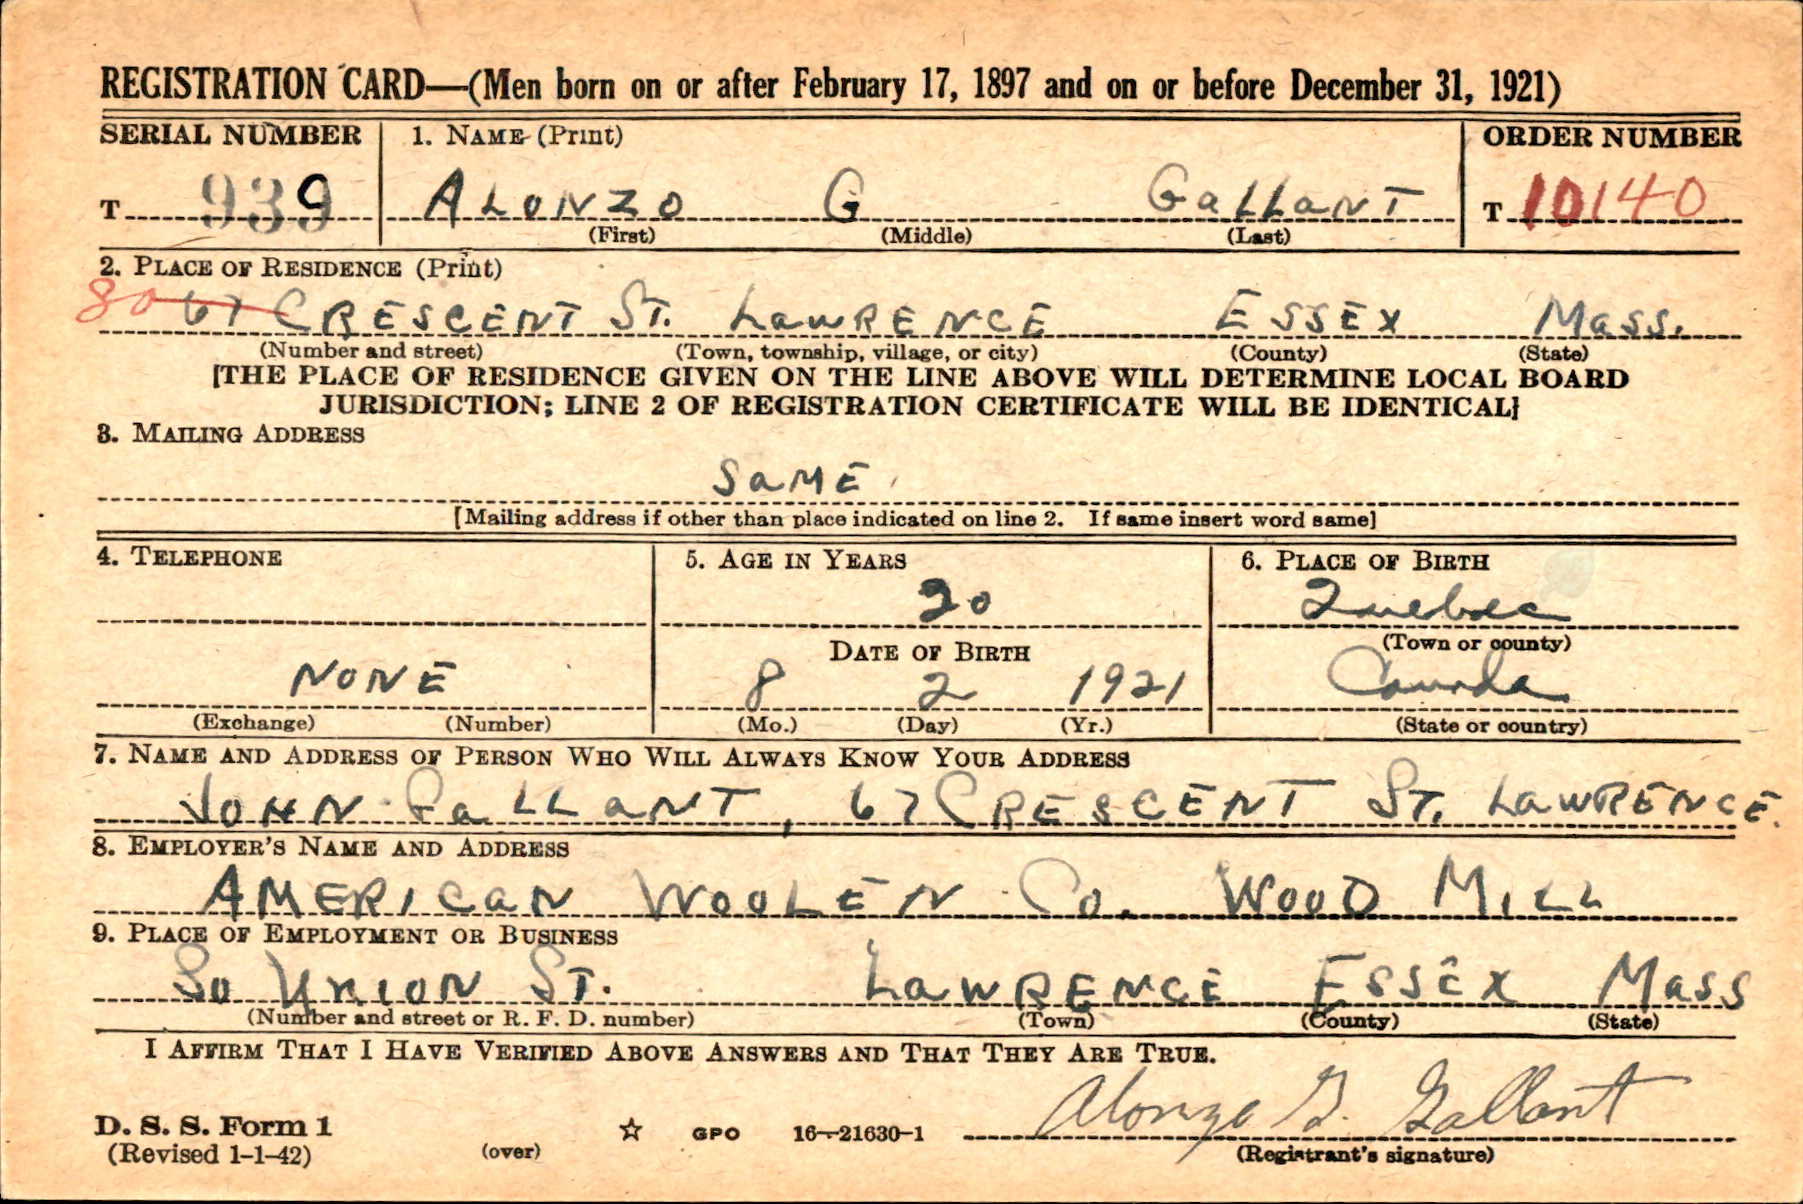 REGISTRATION CARD—(Men born on or after February 17, 1897 and on or before December 31, 1921)
SERIAL NUMBER 1. NAME (Print) ORDER NUMBER
T 939 ALONZO G GALLANT T 10140
(First) (Middle) (Last)
2. PLACE OF RESIDENCE (Print)
80 67 CRESCENT ST. LAWRENCE ESSEX MASS.
(Number and street) (Town, township, village, or city) (County) (State)
[THE PLACE OF RESIDENCE GIVEN ON THE LINE ABOVE WILL DETERMINE LOCAL BOARD
JURISDICTION; LINE 2 OF REGISTRATION CERTIFICATE WILL BE IDENTICAL]
3. MAILING ADDRESS
SAME
[Mailing address if other than place indicated on line 2. If same insert word same]
4. TELEPHONE 5. AGE IN YEARS 6. PLACE OF BIRTH
20 Quebec
DATE OF BIRTH (Town or county)
NONE 8 2 1921 Canada
(Exchange) (Number) (Mo.) (Day) (Yr.) (State or country)
7. NAME AND ADDRESS OF PERSON WHO WILL ALWAYS KNOW YOUR ADDRESS
JOHN GALLANT, 67 CRESCENT ST. LAWRENCE.
8. EMPLOYER'S NAME AND ADDRESS
AMERICAN WOOLEN CO. WOOD MILL
9. PLACE OF EMPLOYMENT OR BUSINESS
SO UNION ST. LAWRENCE ESSEX MASS
(Number and street or R. F. D. number) (Town) (County) (State)
I AFFIRM THAT I HAVE VERIFIED ABOVE ANSWERS AND THAT THEY ARE TRUE.
Alonzo G. Gallant
D. S. S. Form 1
(Revised 1-1-42) (over) ☆ GPO 16—21630-1 (Registrant's signature)